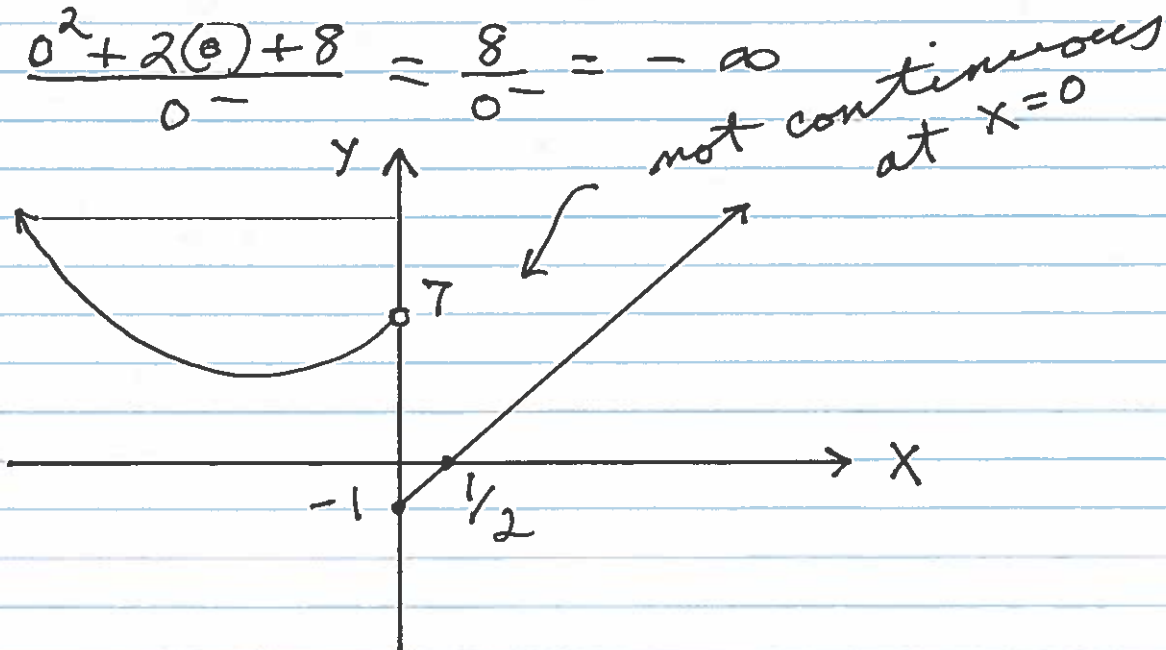 0² + 2(0) + 8 / 0⁻ = 8 / 0⁻ = - ∞
not continuous
at x = 0
Y
7
X
-1
1/2